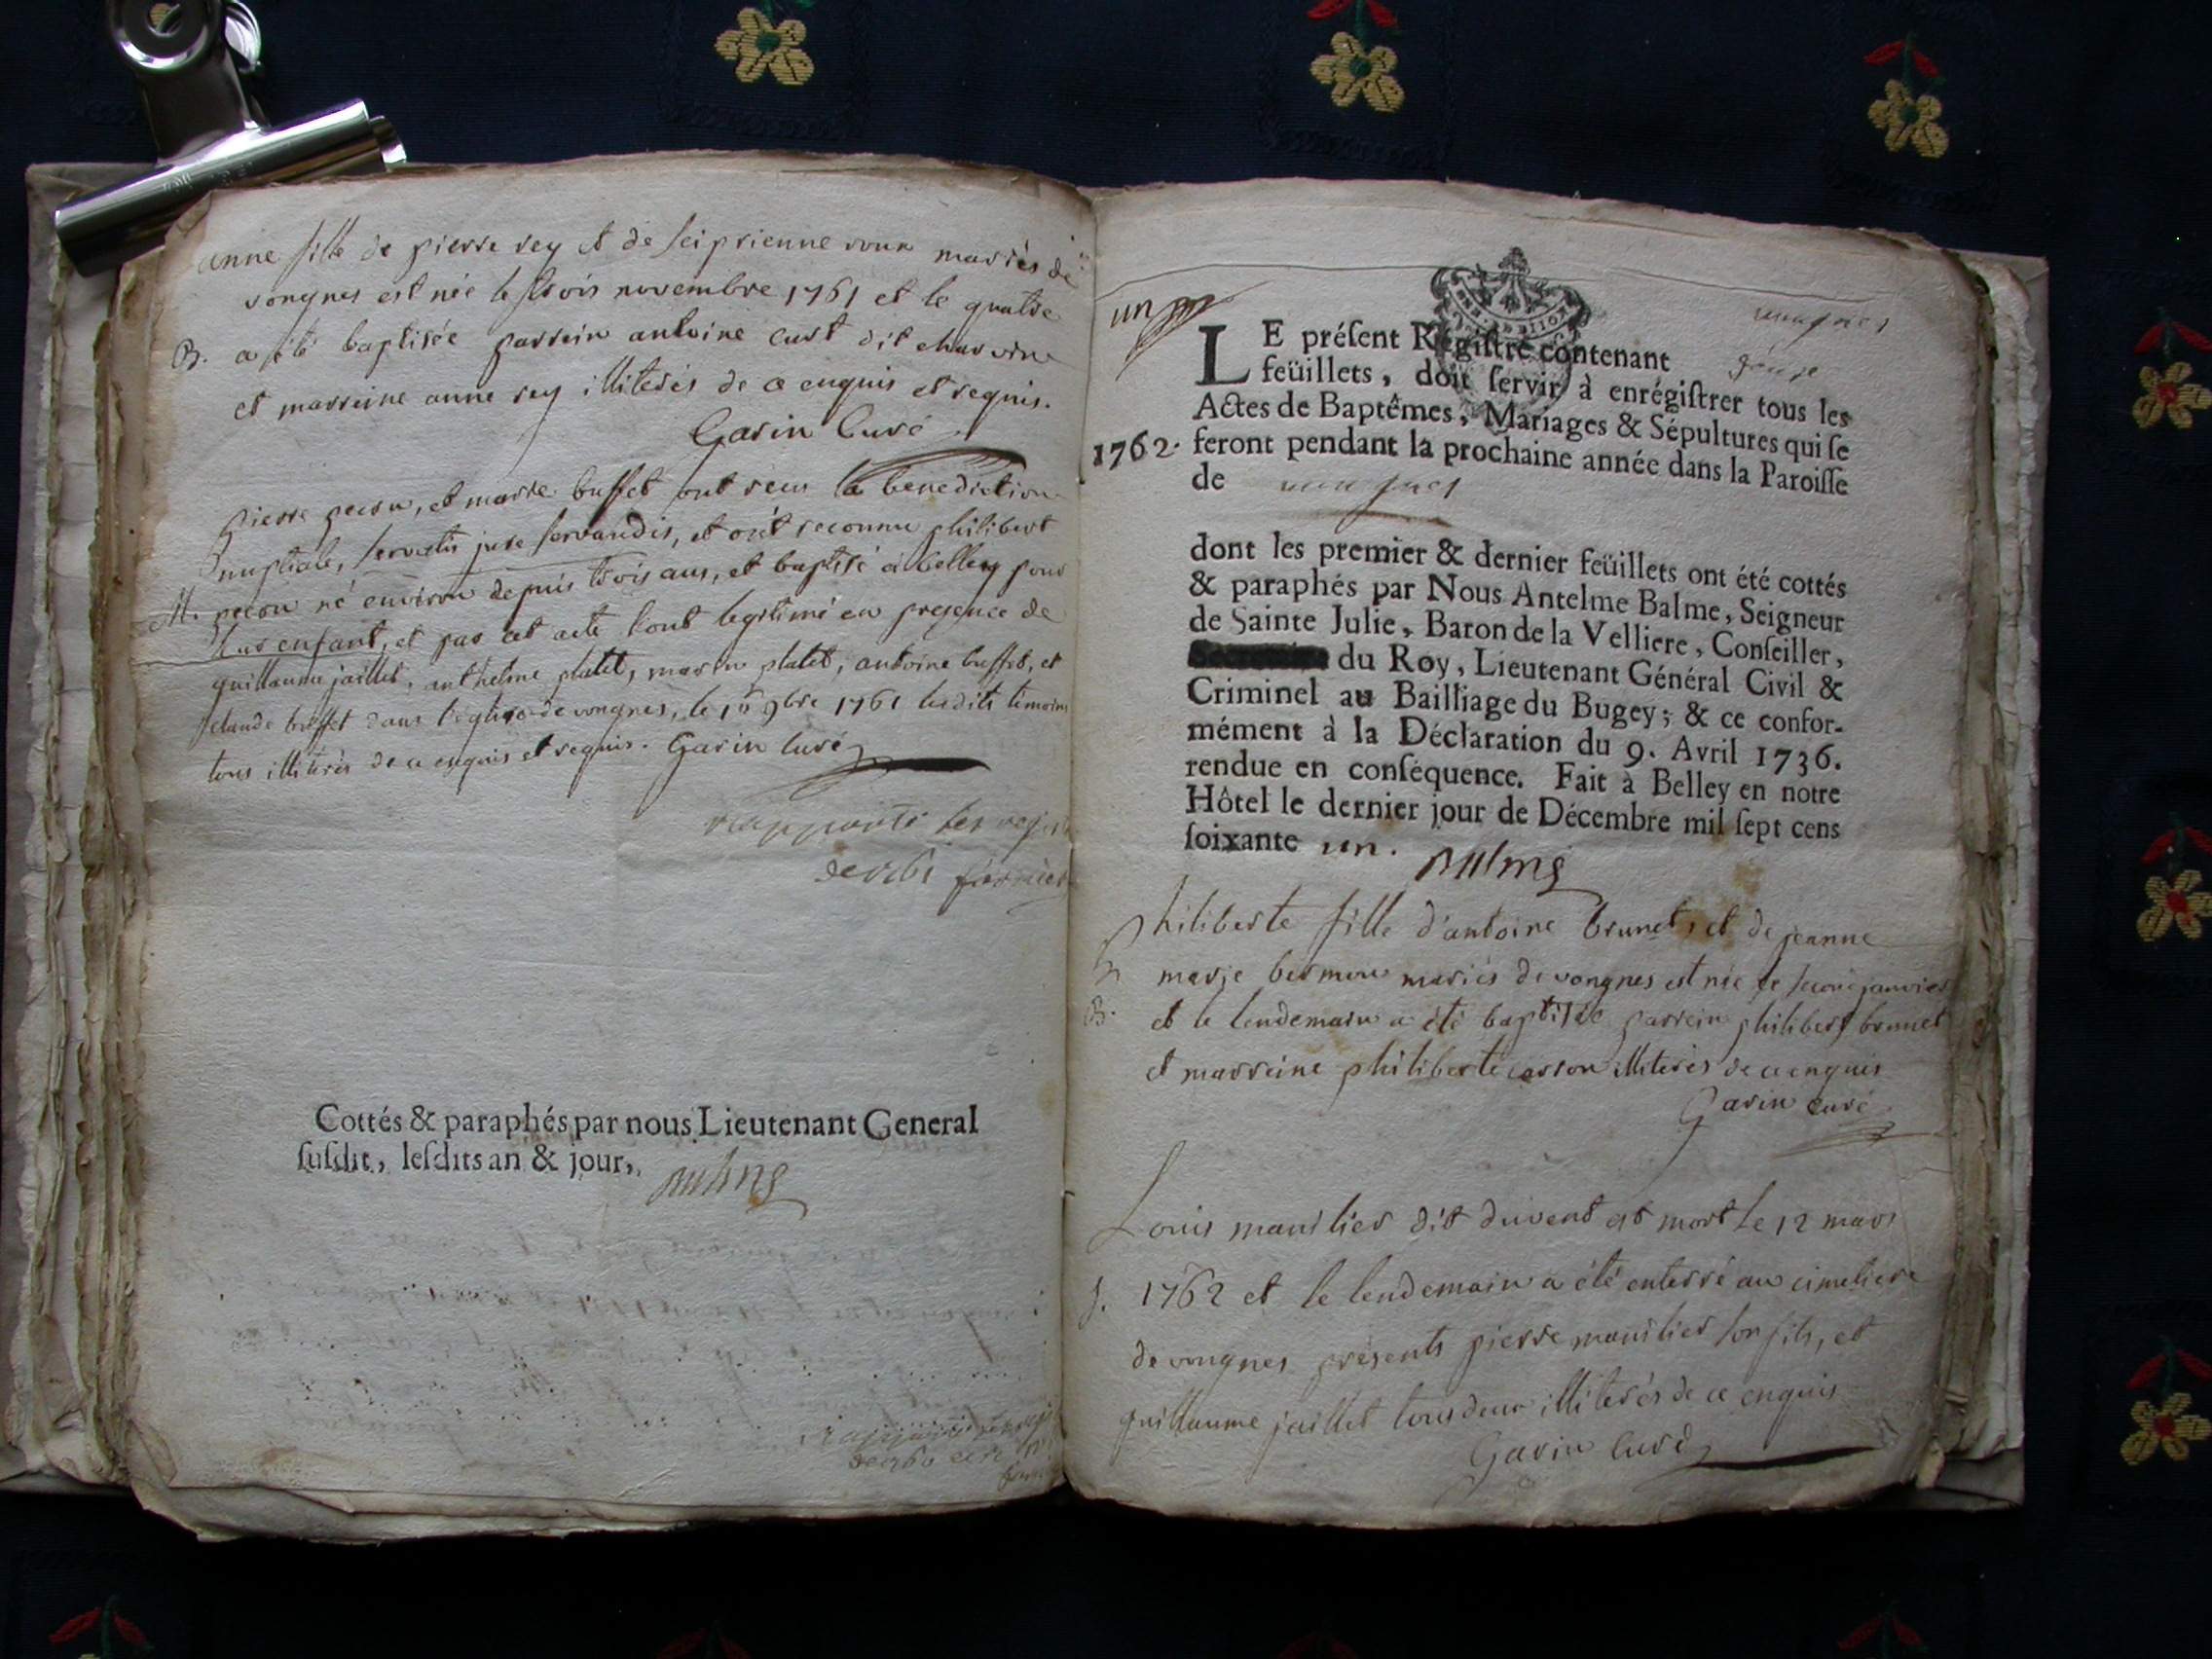 anne fille de pierre rey et de seiprienne roux mariés de
vongnes est née le trois novembre 1761 et le quatre
B. a été baptisée parrein antoine curt dit charvin
et marreine anne rey illiterés de ce enquis et requis.
Garin Curé
pierre pecou, et marie buffet ont reçu la benediction
nuptiale, servatis jure servandis, et ont reconnu philibert
M. pecou né environ depuis trois ans, et baptisé à belley pour
leur enfant, et par cet acte l'ont legitimé en presence de
guillaume jaillet, anthelme platet, marin platet, antoine buffet, et
claude buffet dans l'eglise de vongnes, le 9bre 1761 lesdits temoins
tous illiterés de ce enquis et requis. Garin Curé
rapporté les
de 1761
Cottés & paraphés par nous Lieutenant General
ſuſdit, leſdits an & jour,
Balme
un
vongnes
LE préſent Régiſtre contenant
feüillets, doit ſervir à enrégiſtrer tous les
Actes de Baptêmes, Mariages & Sépultures qui ſe
1762. feront pendant la prochaine année dans la Paroiſſe
de vongnes
dont les premier & dernier feüillets ont été cottés
& paraphés par Nous Antelme Balme, Seigneur
de Sainte Julie, Baron de la Velliere, Conſeiller,
du Roy, Lieutenant Général Civil &
Criminel au Bailliage du Bugey; & ce confor-
mément à la Déclaration du 9. Avril 1736.
rendue en conſéquence. Fait à Belley en notre
Hôtel le dernier jour de Décembre mil ſept cens
ſoixante un.
Balme
Philiberte fille d'antoine brunet, et de jeanne
marie bermon mariés de vongnes est née le janvier
B. et le lendemain a été baptisée parrein philibert brunet
et marreine philiberte carron illiterés de ce enquis
Garin curé
Louis manilier dit duvent est mort le 12 mars
S. 1762 et le lendemain a été enterré au cimetiere
de vongnes présents pierre manilier son fils, et
guillaume jaillet tous deux illiterés de ce enquis
Garin Curé